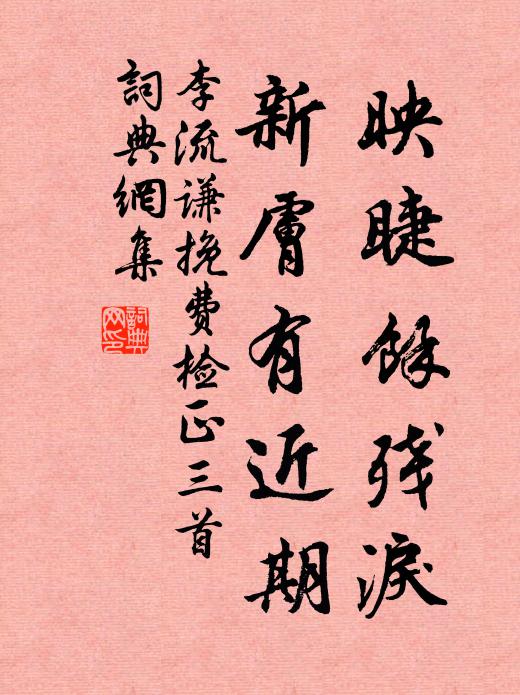 映睫餘残淚
新膚有近期
李流谦挽费檢正三首
詞典網集
詞典网印